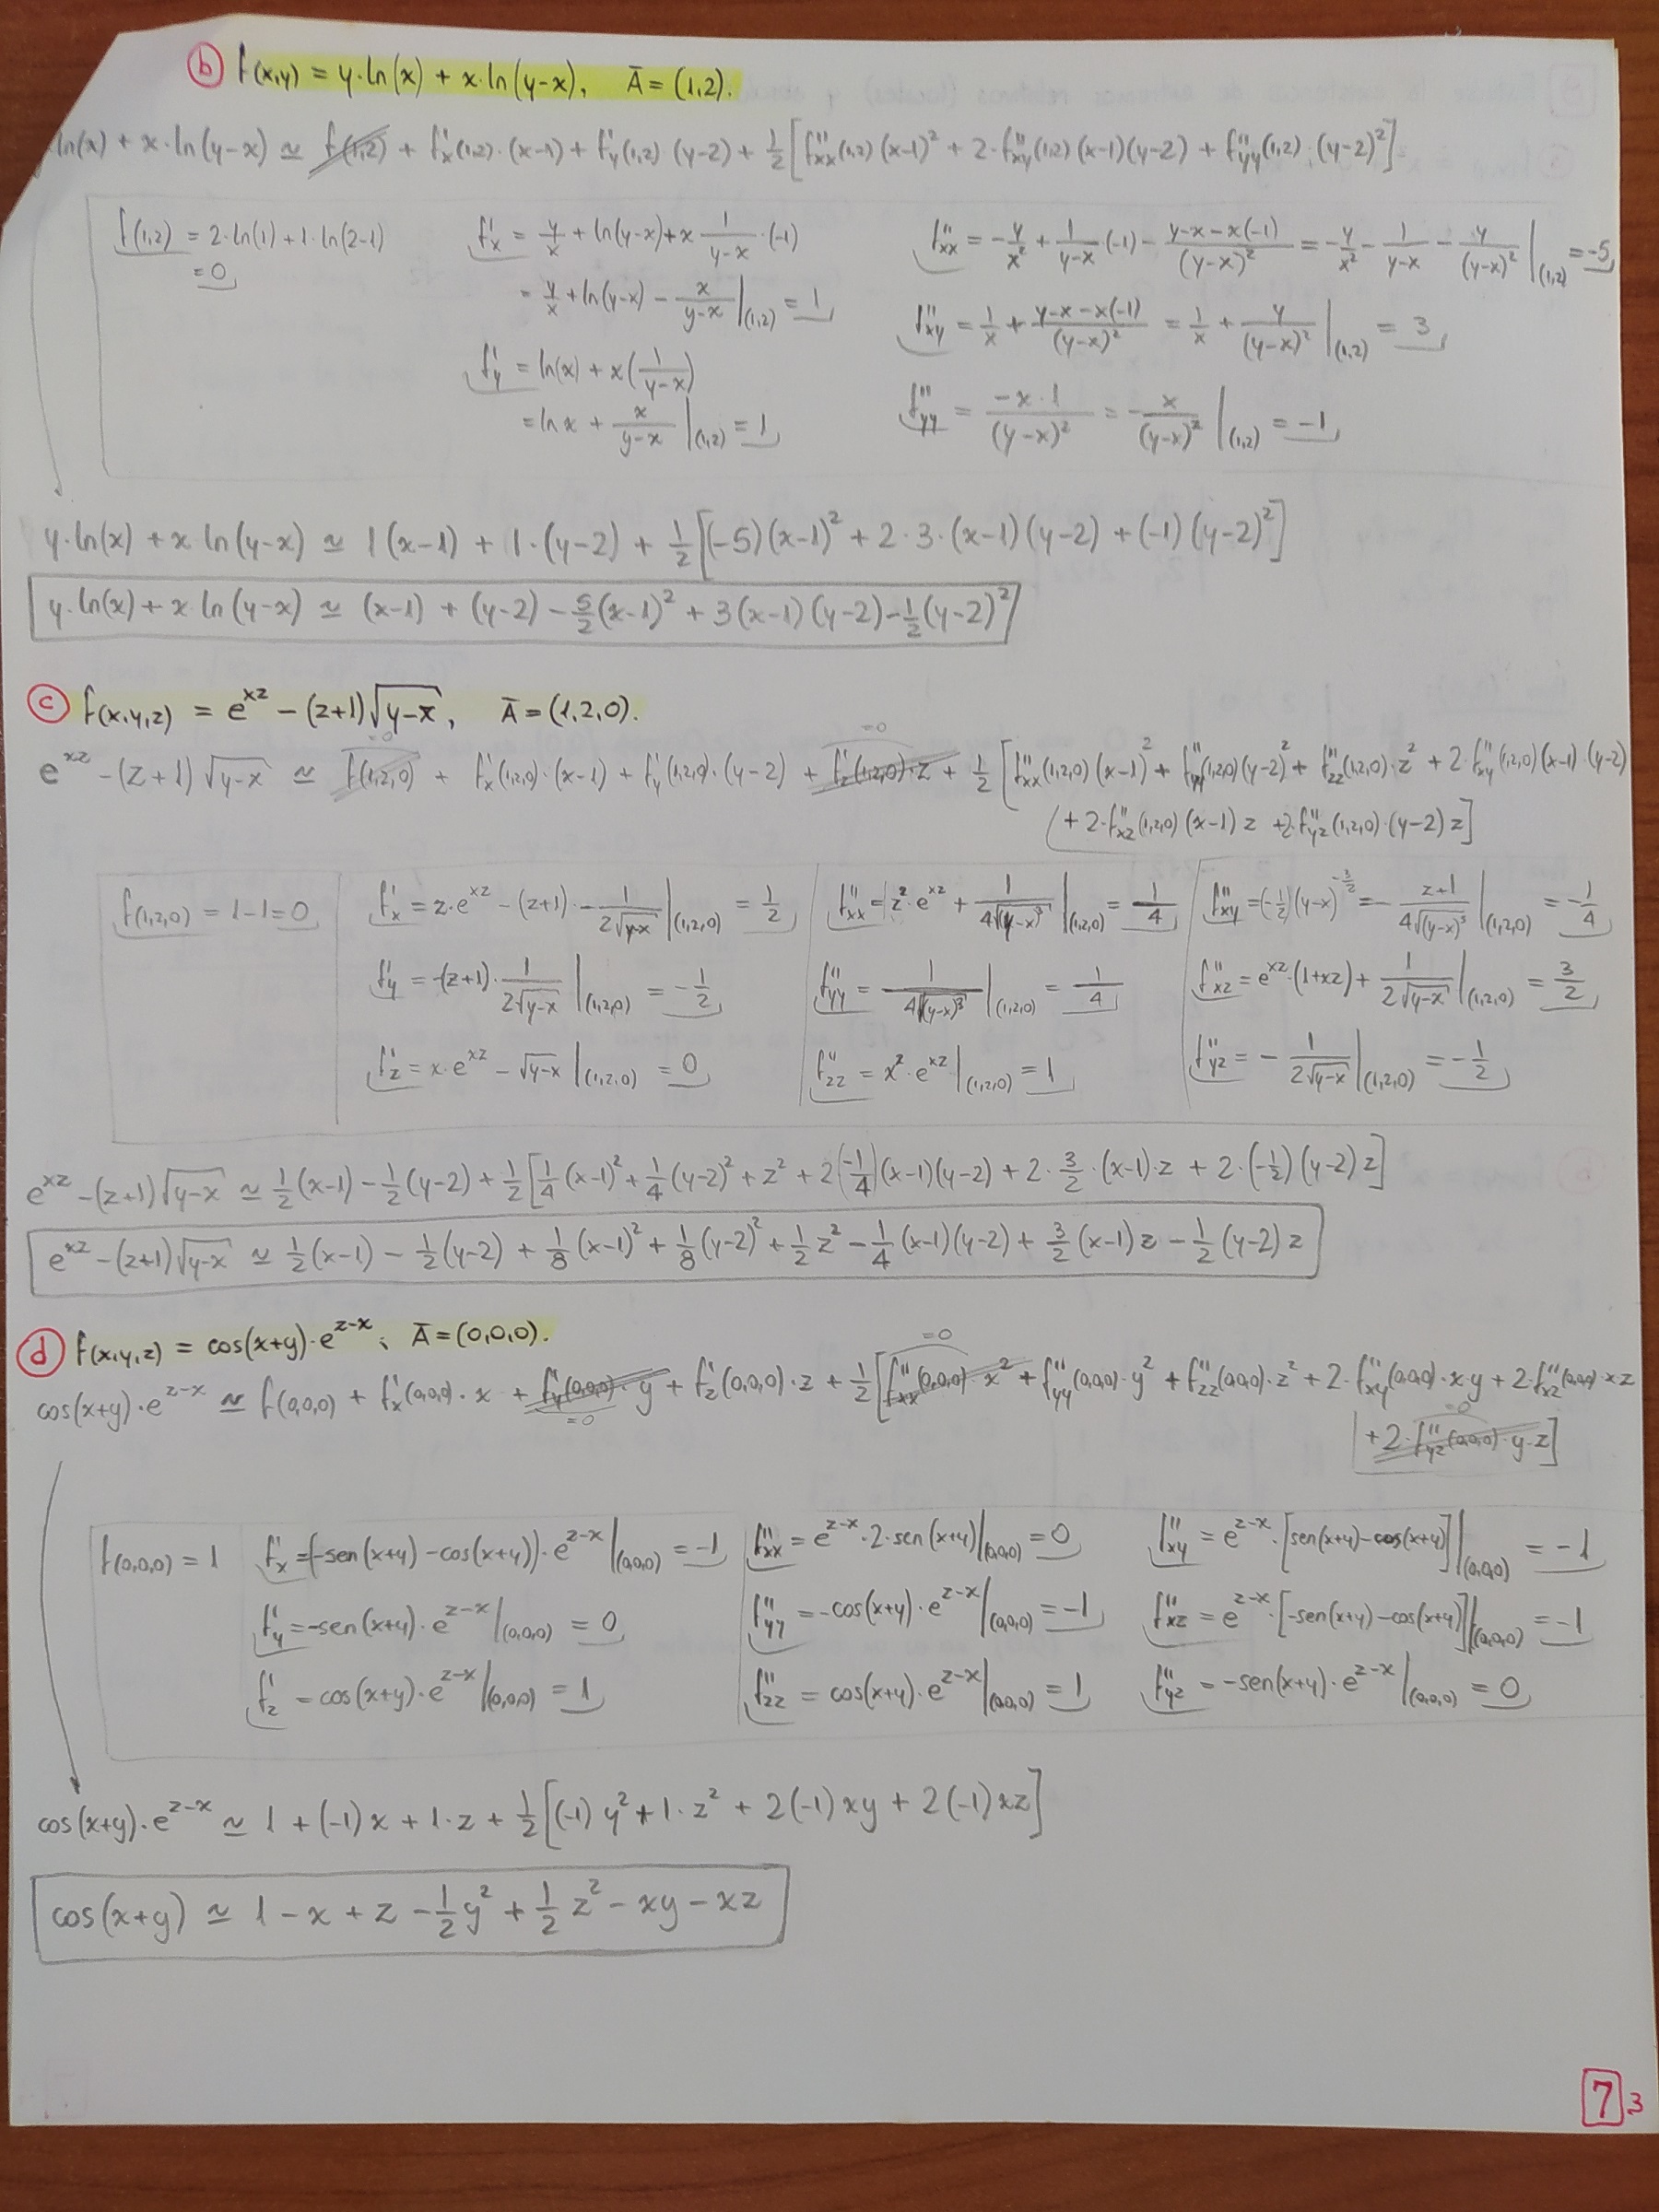 b) f(x,y) = y·ln(x) + x·ln(y-x), Ā = (1,2).
ln(x) + x·ln(y-x) ≃ f(1,2) + f'x(1,2)·(x-1) + f'y(1,2)(y-2) + 1/2[f''xx(1,2)(x-1)² + 2·f''xy(1,2)(x-1)(y-2) + f''yy(1,2)·(y-2)²]
f(1,2) = 2·ln(1)+1·ln(2-1)
= 0
f'x = y/x + ln(y-x)+x 1/(y-x)·(-1)
= y/x + ln(y-x) - x/(y-x) |(1,2) = 1
f'y = ln(x) + x(1/(y-x))
= ln x + x/(y-x) |(1,2) = 1
f''xx = -y/x² + 1/(y-x)·(-1) - (y-x-x(-1))/(y-x)² = -y/x² - 1/(y-x) - y/(y-x)² |(1,2) = -5
f''xy = 1/x + (y-x-x(-1))/(y-x)² = 1/x + y/(y-x)² |(1,2) = 3
f''yy = (-x·1)/(y-x)² = -x/(y-x)² |(1,2) = -1
y·ln(x) + x ln(y-x) ≃ 1(x-1) + 1·(y-2) + 1/2[(-5)(x-1)² + 2·3·(x-1)(y-2) + (-1)(y-2)²]
y·ln(x) + x ln(y-x) ≃ (x-1) + (y-2) - 5/2(x-1)² + 3(x-1)(y-2) - 1/2(y-2)²
c) f(x,y,z) = e^xz - (z+1)√(y-x), Ā = (1,2,0).
=0 =0
e^xz - (z+1)√(y-x) ≃ f(1,2,0) + f'x(1,2,0)·(x-1) + f'y(1,2,0)·(y-2) + f'z(1,2,0)·z + 1/2[f''xx(1,2,0)(x-1)² + f''yy(1,2,0)(y-2)² + f''zz(1,2,0)·z² + 2·f''xy(1,2,0)(x-1)·(y-2)
+ 2·f''xz(1,2,0)(x-1)z + 2·f''yz(1,2,0)·(y-2)z]
f(1,2,0) = 1-1=0
f'x = z·e^xz - (z+1)·-1/(2√(y-x)) |(1,2,0) = 1/2
f'y = -(z+1)·1/(2√(y-x)) |(1,2,0) = -1/2
f'z = x·e^xz - √(y-x) |(1,2,0) = 0
f''xx = z²·e^xz + 1/(4√(y-x)³) |(1,2,0) = 1/4
f''yy = 1/(4√(y-x)³) |(1,2,0) = 1/4
f''zz = x²·e^xz |(1,2,0) = 1
f''xy = (-1/2)(y-x)^-3/2 = - (z+1)/(4√(y-x)³) |(1,2,0) = -1/4
f''xz = e^xz·(1+xz) + 1/(2√(y-x)) |(1,2,0) = 3/2
f''yz = - 1/(2√(y-x)) |(1,2,0) = -1/2
e^xz - (z+1)√(y-x) ≃ 1/2(x-1) - 1/2(y-2) + 1/2[1/4(x-1)² + 1/4(y-2)² + z² + 2(-1/4)(x-1)(y-2) + 2·3/2·(x-1)·z + 2·(-1/2)(y-2)z]
e^xz - (z+1)√(y-x) ≃ 1/2(x-1) - 1/2(y-2) + 1/8(x-1)² + 1/8(y-2)² + 1/2 z² - 1/4(x-1)(y-2) + 3/2(x-1)z - 1/2(y-2)z
d) f(x,y,z) = cos(x+y)·e^z-x, Ā = (0,0,0).
=0
cos(x+y)·e^z-x ≃ f(0,0,0) + f'x(0,0,0)·x + f'y(0,0,0)·y + f'z(0,0,0)·z + 1/2[f''xx(0,0,0)·x² + f''yy(0,0,0)·y² + f''zz(0,0,0)·z² + 2·f''xy(0,0,0)·xy + 2·f''xz(0,0,0)·xz
=0 =0
+ 2·f''yz(0,0,0)·y·z]
f(0,0,0) = 1
f'x = (-sen(x+y) - cos(x+y))·e^z-x |(0,0,0) = -1
f'y = -sen(x+y)·e^z-x |(0,0,0) = 0
f'z = cos(x+y)·e^z-x |(0,0,0) = 1
f''xx = e^z-x·2·sen(x+y) |(0,0,0) = 0
f''yy = -cos(x+y)·e^z-x |(0,0,0) = -1
f''zz = cos(x+y)·e^z-x |(0,0,0) = 1
f''xy = e^z-x·[sen(x+y) - cos(x+y)] |(0,0,0) = -1
f''xz = e^z-x·[-sen(x+y) - cos(x+y)] |(0,0,0) = -1
f''yz = -sen(x+y)·e^z-x |(0,0,0) = 0
cos(x+y)·e^z-x ≃ 1 + (-1)x + 1·z + 1/2[(-1)y² + 1·z² + 2(-1)xy + 2(-1)xz]
cos(x+y) ≃ 1 - x + z - 1/2 y² + 1/2 z² - xy - xz
7 3